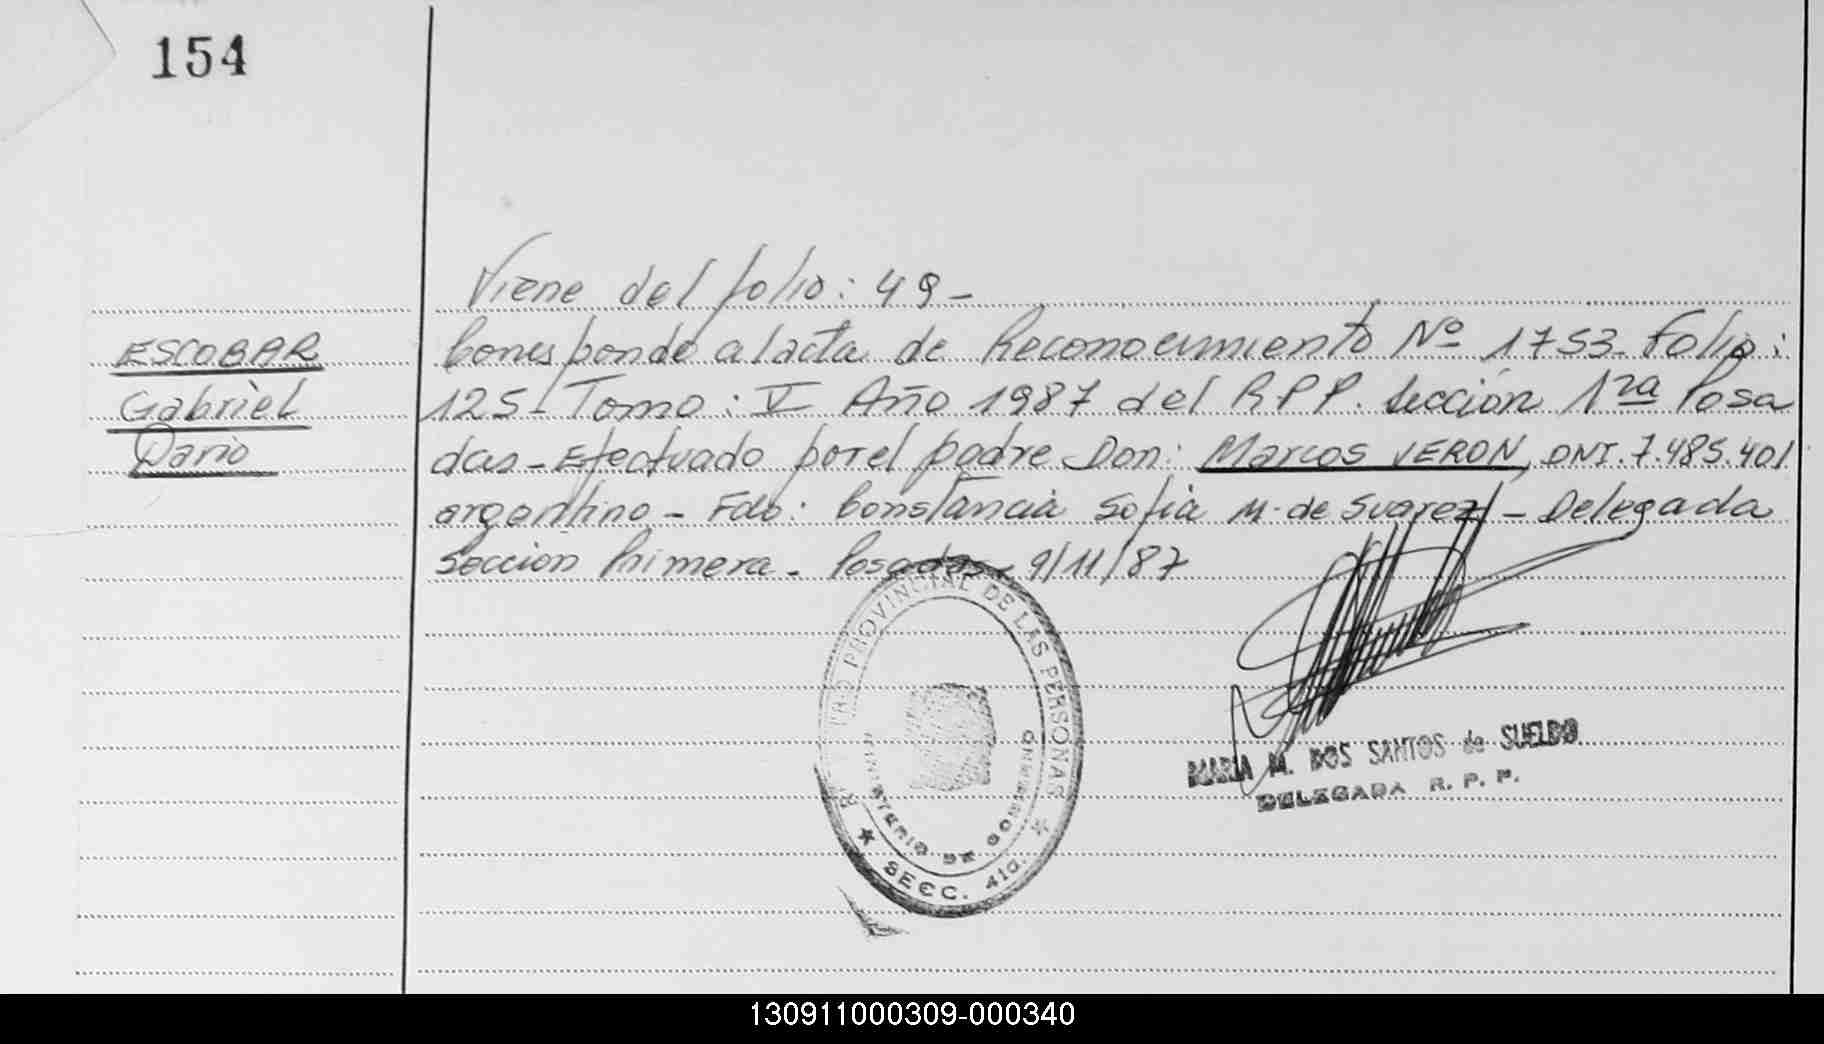 154
Viene del folio: 49-
ESCOBAR
Gabriel
Dario
Corresponde al acta de Reconocimiento Nº 1753- Folio:
125- Tomo: V Año 1987 del R.P.P. Sección 1ra Posa
das- Efectuado por el padre Don: Marcos VERON, DNI. 7.485.401
argentino- Fdo: Constancia Sofia M. de Suarez - Delegada
Sección Primera- Posadas- 9/11/87
REGISTRO PROVINCIAL DE LAS PERSONAS
MINISTERIO DE GOBIERNO
★ SECC. 41a. ★
MARIA M. DOS SANTOS de SUELDO
DELEGADA R. P. P.
130911000309-000340